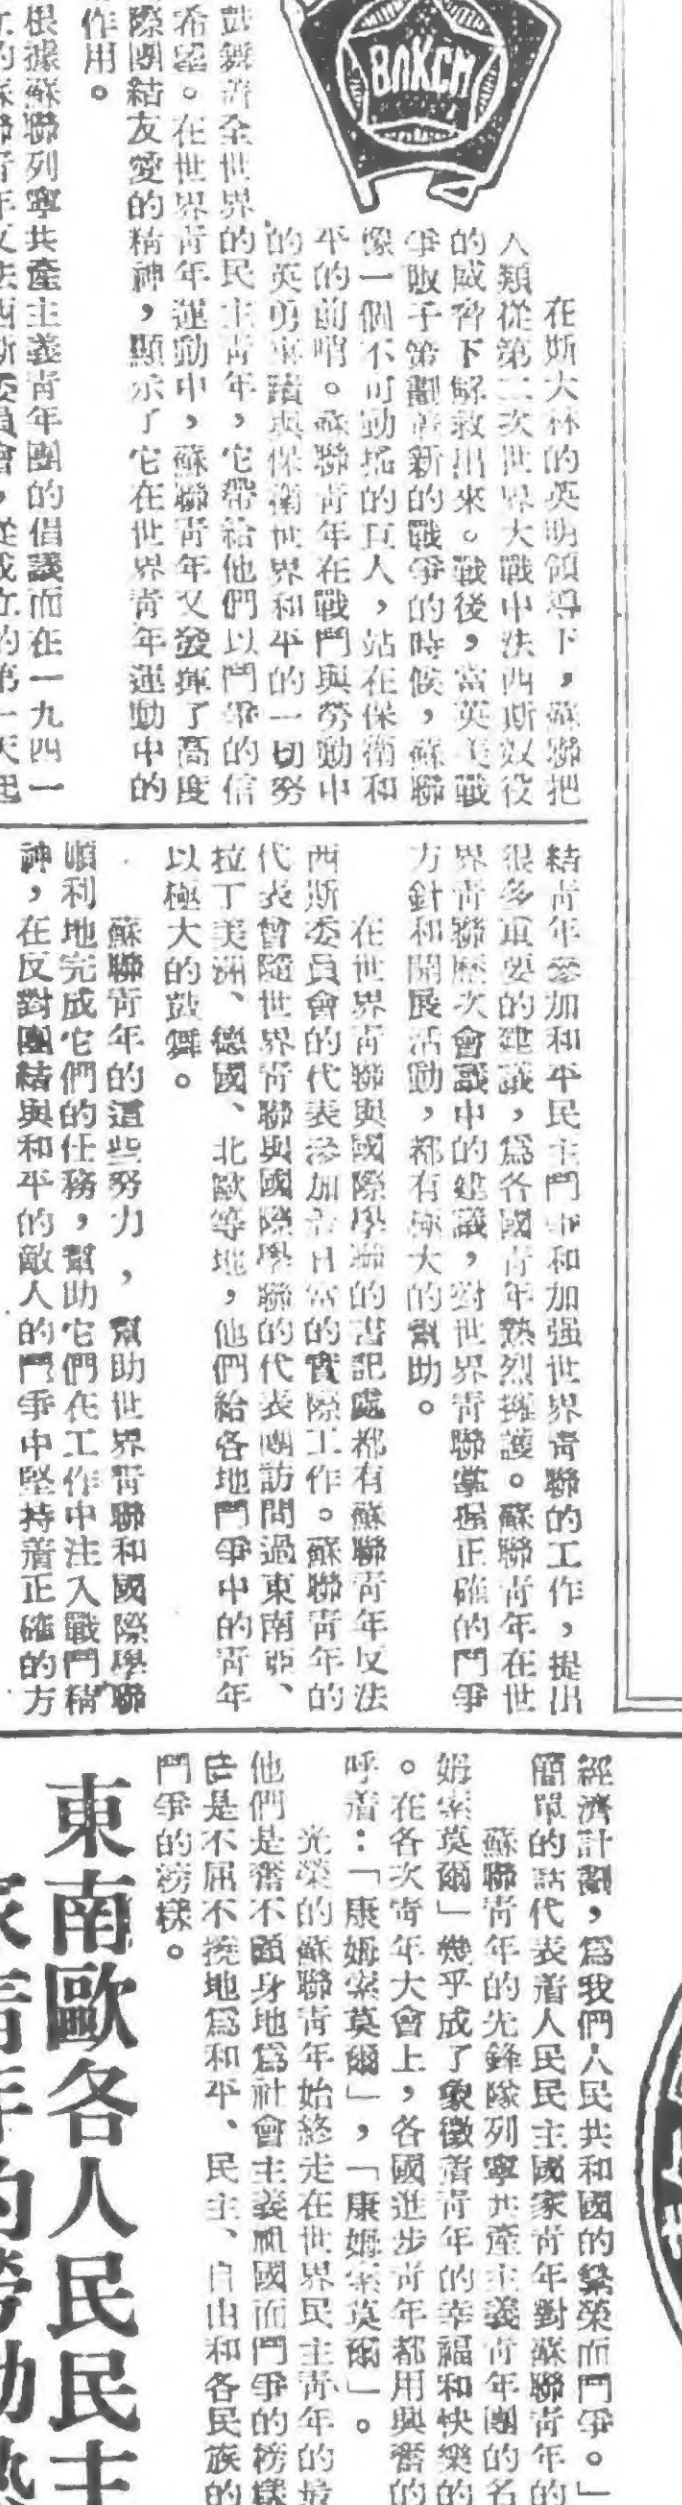 ВЛКСМ
在斯大林的英明領導下，蘇聯把
人類從第二次世界大戰中法西斯奴役
的威脅下解救出來。戰後，當英美戰
爭販子策劃着新的戰爭的時候，蘇聯
像一個不可動搖的巨人，站在保衛和
平的前哨。蘇聯青年在戰鬥與勞動中
的英勇事蹟與保衛世界和平的一切努
鼓舞着全世界的民主青年，它帶給他們以鬥爭的信
希望。在世界青年運動中，蘇聯青年又發揮了高度
際團結友愛的精神，顯示了它在世界青年運動中的
作用。
根據蘇聯列寧共產主義青年團的倡議而在一九四一
立的蘇聯青年反法西斯委員會，從成立的第一天起
結青年參加和平民主鬥爭和加强世界青聯的工作，提出
很多重要的建議，爲各國青年熱烈擁護。蘇聯青年在世
界青聯歷次會議中的建議，對世界青聯掌握正確的鬥爭
方針和開展活動，都有極大的幫助。
在世界青聯與國際學聯的書記處都有蘇聯青年反法
西斯委員會的代表參加着日常的實際工作。蘇聯青年的
代表曾隨世界青聯與國際學聯的代表團訪問過東南亞、
拉丁美洲、德國、北歐等地，他們給各地鬥爭中的青年
以極大的鼓舞。
蘇聯青年的這些努力，幫助世界青聯和國際學聯
順利地完成它們的任務，幫助它們在工作中注入戰鬥精
神，在反對團結與和平的敵人的鬥爭中堅持着正確的方
經濟計劃，爲我們人民共和國的繁榮而鬥爭。」
簡單的話代表着人民民主國家青年對蘇聯青年的
蘇聯青年的先鋒隊列寧共產主義青年團的名
姆索莫爾」幾乎成了象徵着青年的幸福和快樂的
。在各次青年大會上，各國進步青年都用興奮的
呼着：「康姆索莫爾」，「康姆索莫爾」。
光榮的蘇聯青年始終走在世界民主青年的最
他們是奮不顧身地爲社會主義祖國而鬥爭的榜樣
是不屈不撓地爲和平、民主、自由和各民族的
鬥爭的榜樣。
東南歐各人民民主
家青年的勞動熱